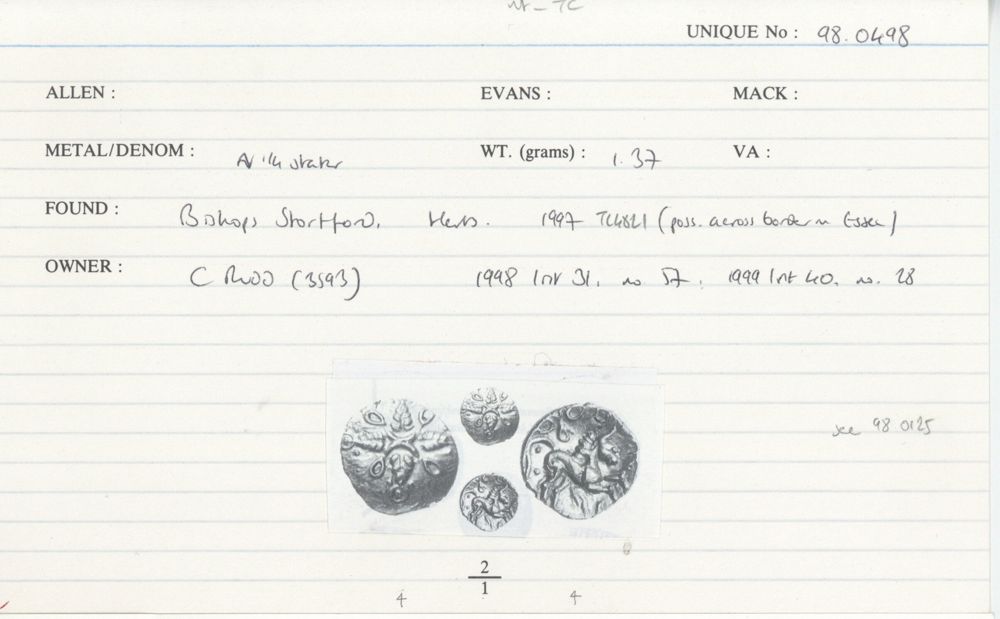 UNIQUE No : 98.0498
ALLEN : EVANS : MACK :
METAL/DENOM : AV 1/4 stater WT. (grams) : 1.37 VA :
FOUND : Bishops Stortford, Herts. 1997 TL4821 (poss. across border in Essex)
OWNER : C Rudd (3593) 1998 list 31, no 57. 1999 list 40, no. 28
see 98 0125
2
1
4 4